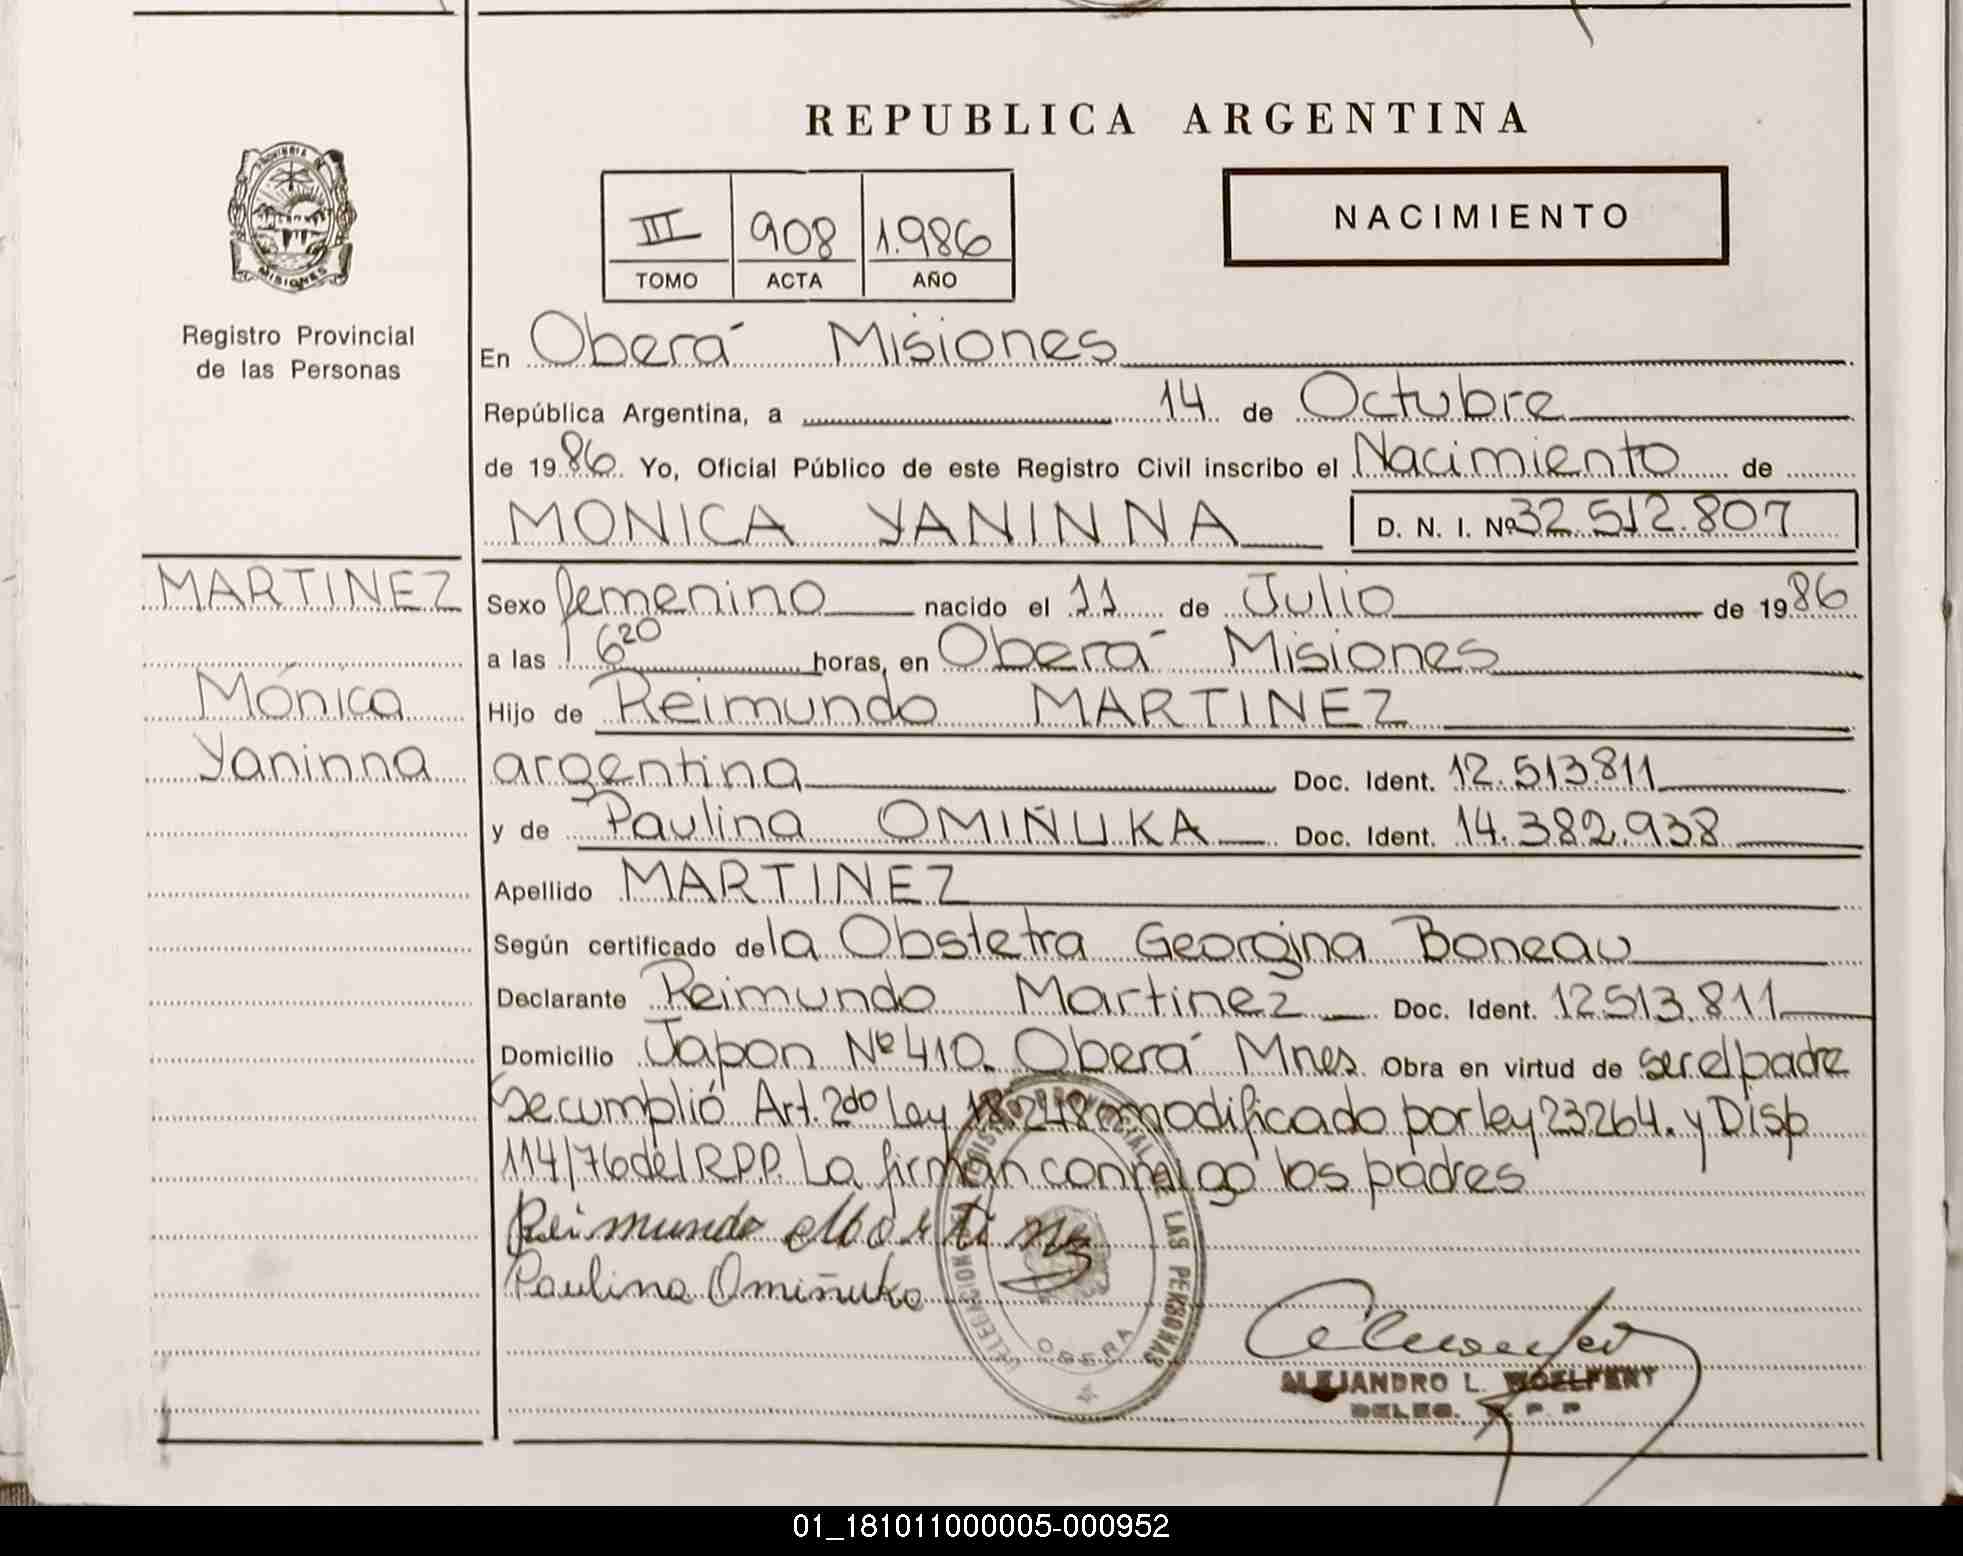 REPUBLICA ARGENTINA
PROVINCIA DE
MISIONES
Registro Provincial
de las Personas
III 908 1.986
TOMO ACTA AÑO
NACIMIENTO
En Oberá Misiones
República Argentina, a 14 de Octubre
de 1986 Yo, Oficial Público de este Registro Civil inscribo el Nacimiento de
MONICA YANINNA D. N. I. Nº 32.512.807
MARTINEZ
Mónica
Yaninna
Sexo femenino nacido el 11 de Julio de 1986
a las 16 20 horas, en Oberá Misiones
Hijo de Reimundo MARTINEZ
argentina Doc. Ident. 12.513.811
y de Paulina OMIÑUKA Doc. Ident. 14.382.938
Apellido MARTINEZ
Según certificado de la Obstetra Georgina Boneau
Declarante Reimundo Martinez Doc. Ident. 12.513.811
Domicilio Japon Nº 410. Oberá Mnes. Obra en virtud de ser el padre
Se cumplió Art. 2do Ley 18.248 modificado por ley 23264. y Disp
114/76 del R.P.P. La firman conmigo los padres
Reimundo Martinez
Paulina Omiñuka
DELEGACION REGISTRO PROVINCIAL DE LAS PERSONAS
OBERA
ALEJANDRO L. WOELFERT
DELEG. R. P. P
01_181011000005-000952